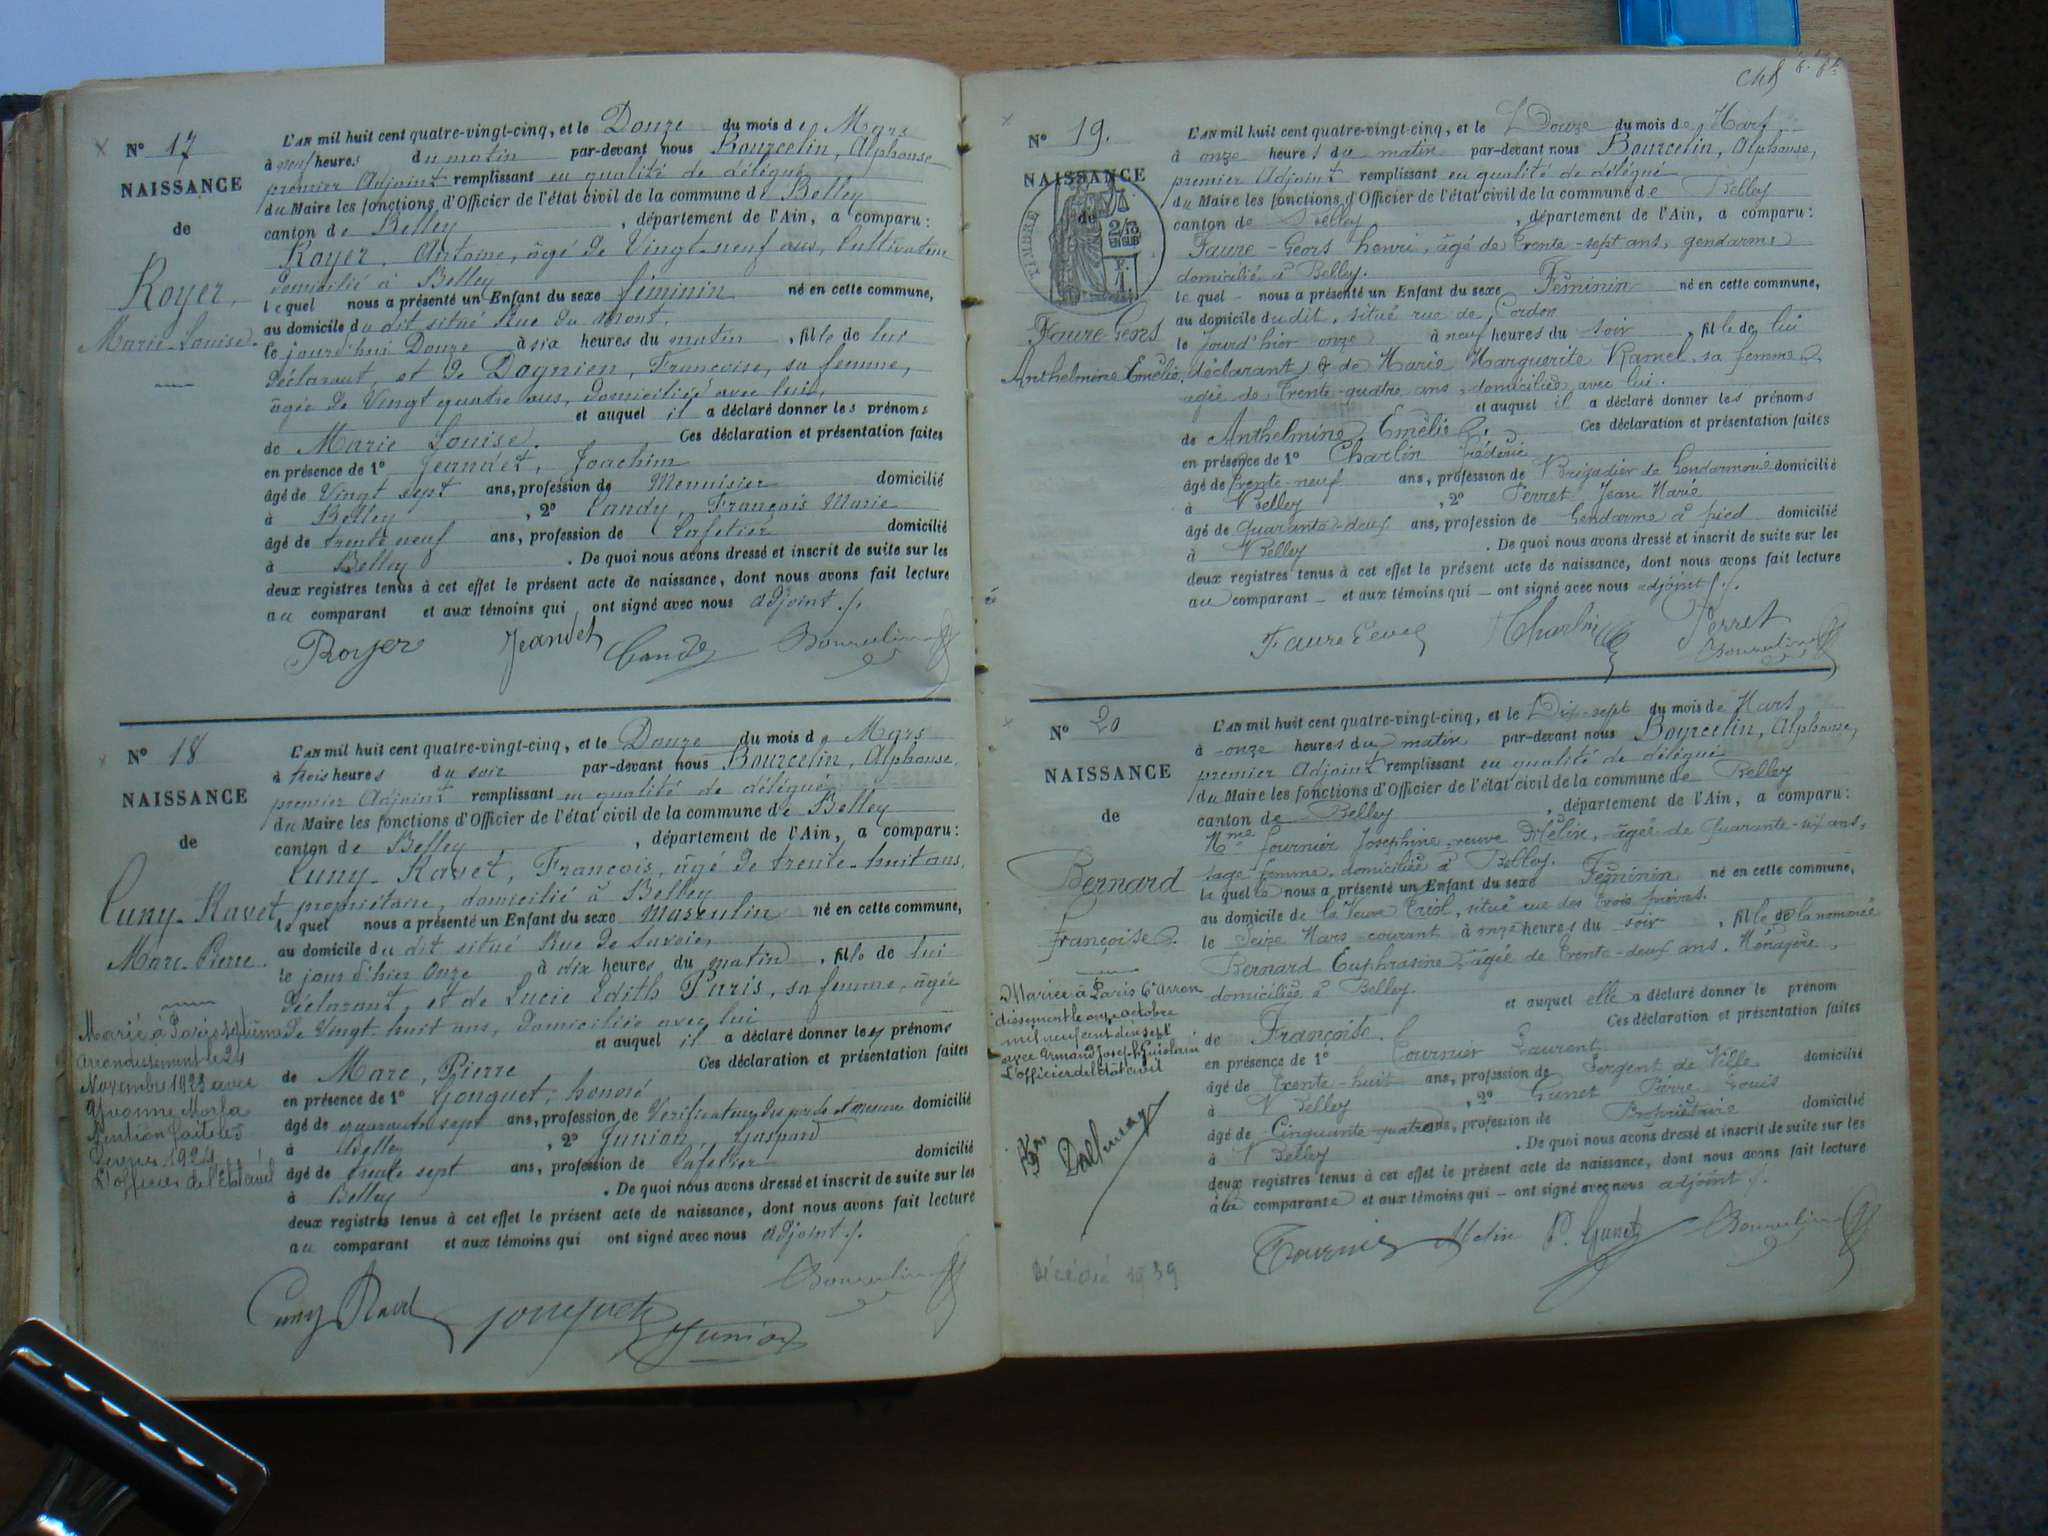 N° 17
NAISSANCE
de
Royer,
Marie-Louise.
L'AN mil huit cent quatre-vingt-cinq, et le Douze du mois de Mars
à neuf heures du matin par-devant nous Bourcelin, Alphonse
premier Adjoint remplissant en qualité de délégué
du Maire les fonctions d'Officier de l'état civil de la commune de Belley
canton de Belley, département de l'Ain, a comparu:
Royer, Antoine, âgé de Vingt-neuf ans, Cultivateur
domicilié à Belley
lequel nous a présenté un Enfant du sexe féminin né en cette commune,
au domicile du dit situé Rue du Mont.
le jourd'hui Douze à six heures du matin, fille de lui
déclarant, et de Dagnien, Françoise, sa femme,
âgée de Vingt quatre ans, domiciliée avec lui,
et auquel il a déclaré donner les prénoms
de Marie Louise. Ces déclaration et présentation faites
en présence de 1° Jeandet, Joachim
âgé de Vingt sept ans, profession de Menuisier domicilié
à Belley, 2° Candy, François Marie
âgé de trente neuf ans, profession de Cafetier domicilié
à Belley. De quoi nous avons dressé et inscrit de suite sur les
deux registres tenus à cet effet le présent acte de naissance, dont nous avons fait lecture
au comparant et aux témoins qui ont signé avec nous adjoint ./.
Royer Jeandet Candy Bourcelin
N° 18
NAISSANCE
de
Cuny-Ravet
Marc-Pierre.
Marié à Paris septième
arrondissement le 24
Novembre 1923 avec
Yvonne Morfa
Mention faite le 5
1924
L'officier de l'Etat civil
L'AN mil huit cent quatre-vingt-cinq, et le Douze du mois de Mars
à trois heures du soir par-devant nous Bourcelin, Alphonse,
premier Adjoint remplissant en qualité de délégué
du Maire les fonctions d'Officier de l'état civil de la commune de Belley
canton de Belley, département de l'Ain, a comparu:
Cuny-Ravet, François, âgé de trente-huit ans,
propriétaire, domicilié à Belley
lequel nous a présenté un Enfant du sexe Masculin né en cette commune,
au domicile du dit situé Rue de Savoie,
le jour d'hier Onze à dix heures du matin, fils de lui
déclarant, et de Lucie Edith Paris, sa femme, âgée
de Vingt-huit ans, domiciliée avec lui
et auquel il a déclaré donner les prénoms
de Marc, Pierre Ces déclaration et présentation faites
en présence de 1° Gonguet, honoré
âgé de quarante sept ans, profession de Vérificateur des poids et mesures domicilié
à Belley, 2° Junion, Gaspard
âgé de trente sept ans, profession de Cafetier domicilié
à Belley. De quoi nous avons dressé et inscrit de suite sur les
deux registres tenus à cet effet le présent acte de naissance, dont nous avons fait lecture
au comparant et aux témoins qui ont signé avec nous adjoint ./.
Bourcelin
Cuny Ravet Gonguet Junion
N° 19.
NAISSANCE
de
TIMBRE
2/10
EN SUS
F.
1
Faure-Geors
Anthelmine Emélie.
L'AN mil huit cent quatre-vingt-cinq, et le Douze du mois de Mars
à onze heures du matin par-devant nous Bourcelin, Alphonse,
premier Adjoint remplissant en qualité de délégué
du Maire les fonctions d'Officier de l'état civil de la commune de Belley
canton de Belley, département de l'Ain, a comparu:
Faure-Geors henri, âgé de trente-sept ans, gendarme
domicilié à Belley.
lequel nous a présenté un Enfant du sexe Féminin né en cette commune,
au domicile du dit, situé rue de Cordon
le jourd'hier onze à neuf heures du soir, fille de lui
déclarant, & de Marie Marguerite Ramel sa femme,
agée de trente-quatre ans, domiciliée avec lui.
et auquel il a déclaré donner les prénoms
de Anthelmine Emélie. Ces déclaration et présentation faites
en présence de 1° Charlin Frédéric
âgé de trente-neuf ans, profession de Brigadier de Gendarmerie domicilié
à Belley, 2° Perret Jean Marie
âgé de quarante-deux ans, profession de Gendarme à pied domicilié
à Belley. De quoi nous avons dressé et inscrit de suite sur les
deux registres tenus à cet effet le présent acte de naissance, dont nous avons fait lecture
au comparant et aux témoins qui ont signé avec nous adjoint ./.
Charlin Perret Bourcelin
N° 20
NAISSANCE
de
Bernard
Françoise.
Mariée à Paris 6e arron
dissement le onze octobre
mil neuf cent dix sept
avec Armand Joseph Guislain
L'officier de l'Etat civil
Décédé 1939
L'AN mil huit cent quatre-vingt-cinq, et le Dix-sept du mois de Mars,
à onze heures du matin par-devant nous Bourcelin, Alphonse,
premier Adjoint remplissant en qualité de délégué
du Maire les fonctions d'Officier de l'état civil de la commune de Belley
canton de Belley, département de l'Ain, a comparu:
Mme fournier Josephine veuve Mélin, âgée de quarante-six ans,
sage femme domiciliée à Belley.
laquelle nous a présenté un Enfant du sexe Féminin né en cette commune,
au domicile de la Veuve Triol, situé rue des trois
le Seize Mars courant à onze heures du soir, fille de la nommée
Bernard Euphrasine, âgée de trente-deux ans, Ménagère,
domiciliée à Belley.
et auquel elle a déclaré donner le prénom
de Françoise. Ces déclaration et présentation faites
en présence de 1° Tournier Laurent
âgé de trente-huit ans, profession de Sergent de Ville domicilié
à Belley, 2° Gunet Pierre Louis
âgé de Cinquante-quatre ans, profession de Propriétaire domicilié
à Belley. De quoi nous avons dressé et inscrit de suite sur les
deux registres tenus à cet effet le présent acte de naissance, dont nous avons fait lecture
à la comparante et aux témoins qui ont signé avec nous adjoint ./.
Tournier Melin P. Gunet Bourcelin